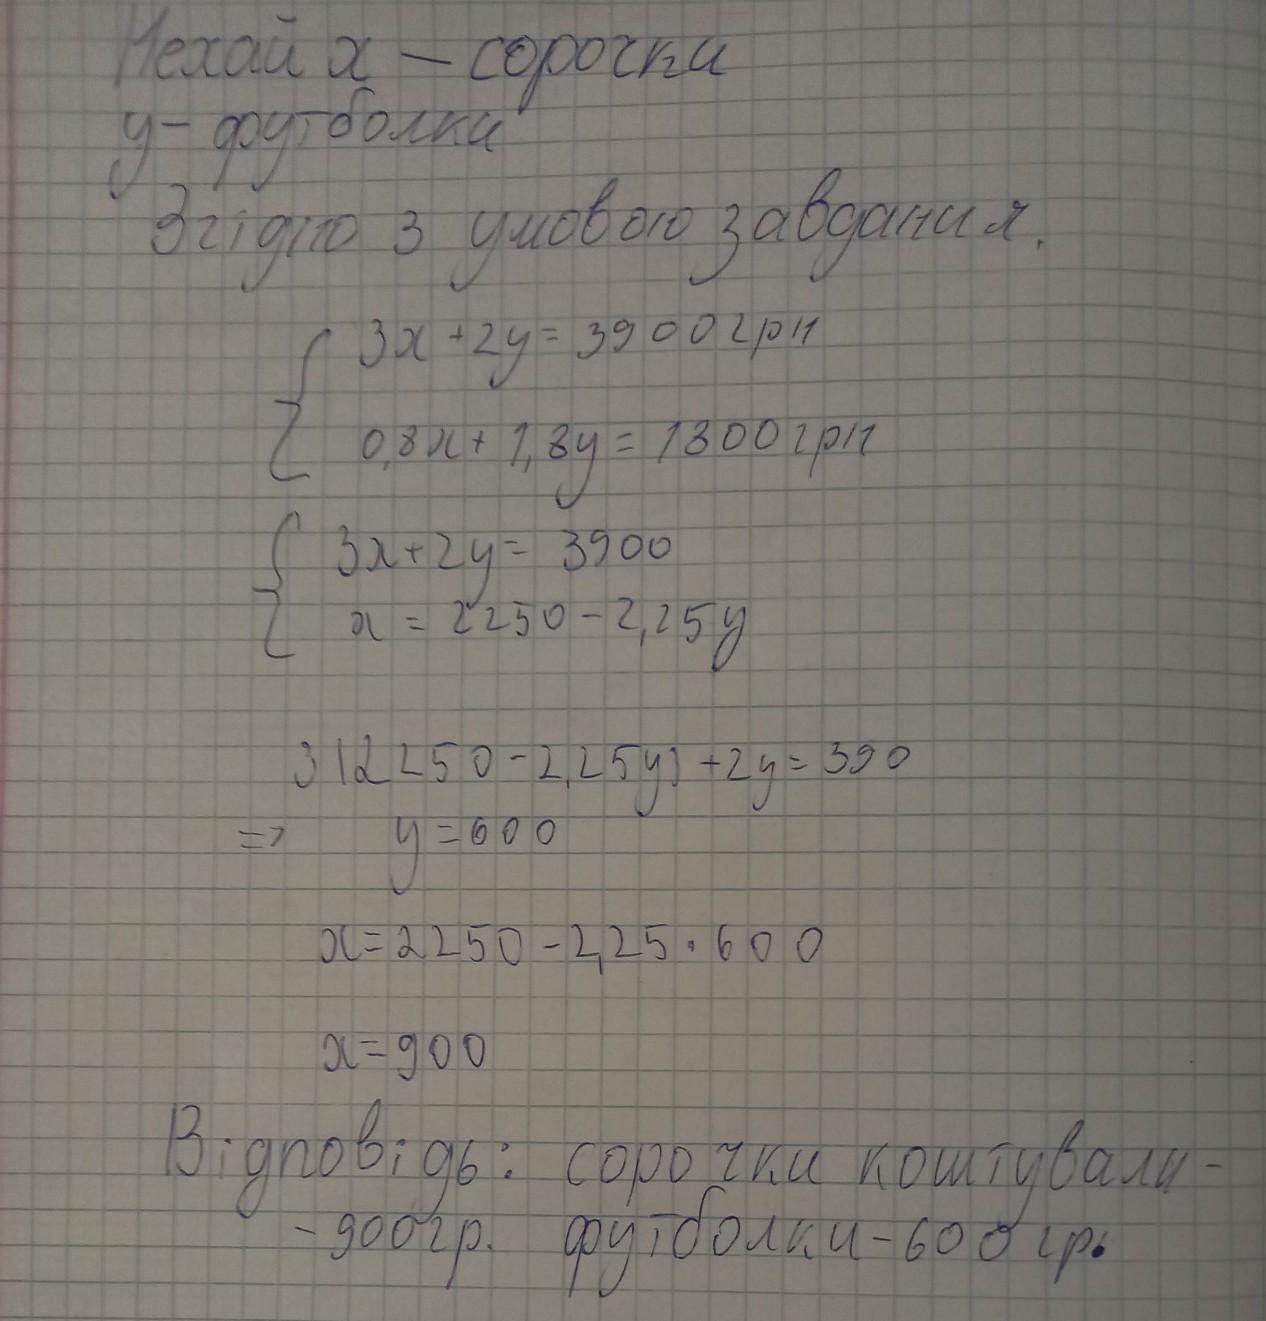 Нехай x – сорочки
y – футболки
Згідно з умовою завдання.
3x + 2y = 3900 грн
0,8x + 1,8y = 1800 грн
3x + 2y = 3900
x = 2250 - 2,25y
3(2250 - 2,25y) + 2y = 390
=> y = 600
x = 2250 - 2,25 · 600
x = 900
Відповідь: сорочки коштували -
- 900 гр. футболки - 600 гр.